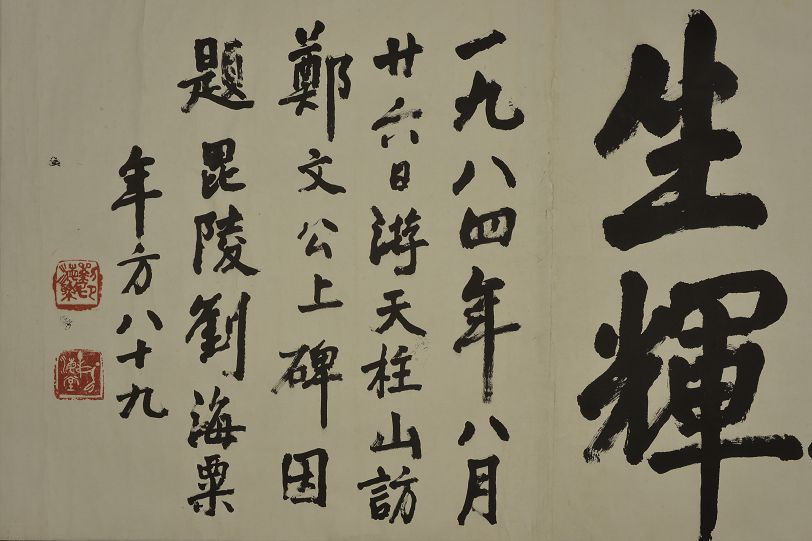 生輝
一九八四年八月
廿六日游天柱山訪
鄭文公上碑因
題毘陵劉海粟
年方八十九